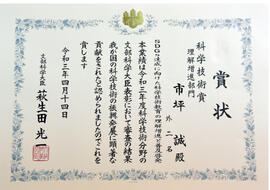 賞状
科学技術賞
理解増進部門
SDGs達成に向けた科学技術教育の理解増進と普及啓発
市坪 誠 殿
外二名
本業績は令和三年度科学技術分野の
文部科学大臣表彰において審査の結果
我が国の科学技術の振興発展に顕著な
貢献をしたと認められましたのでこれを
賞します
令和三年四月十四日
文部科学大臣
萩生田光一